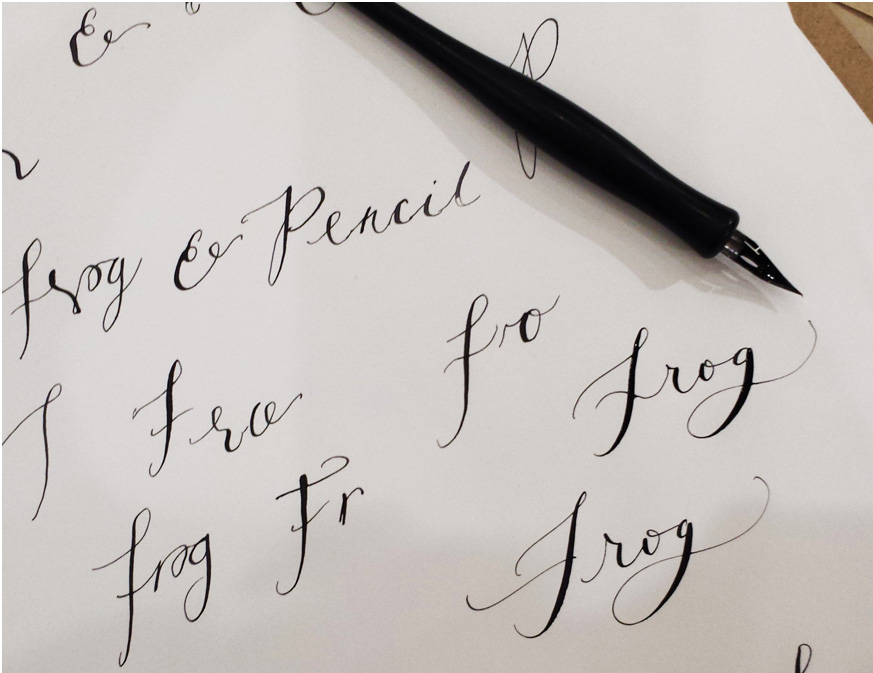 &
P
frog & Pencil
fro
frog
f
Fro
frog
Fr
frog